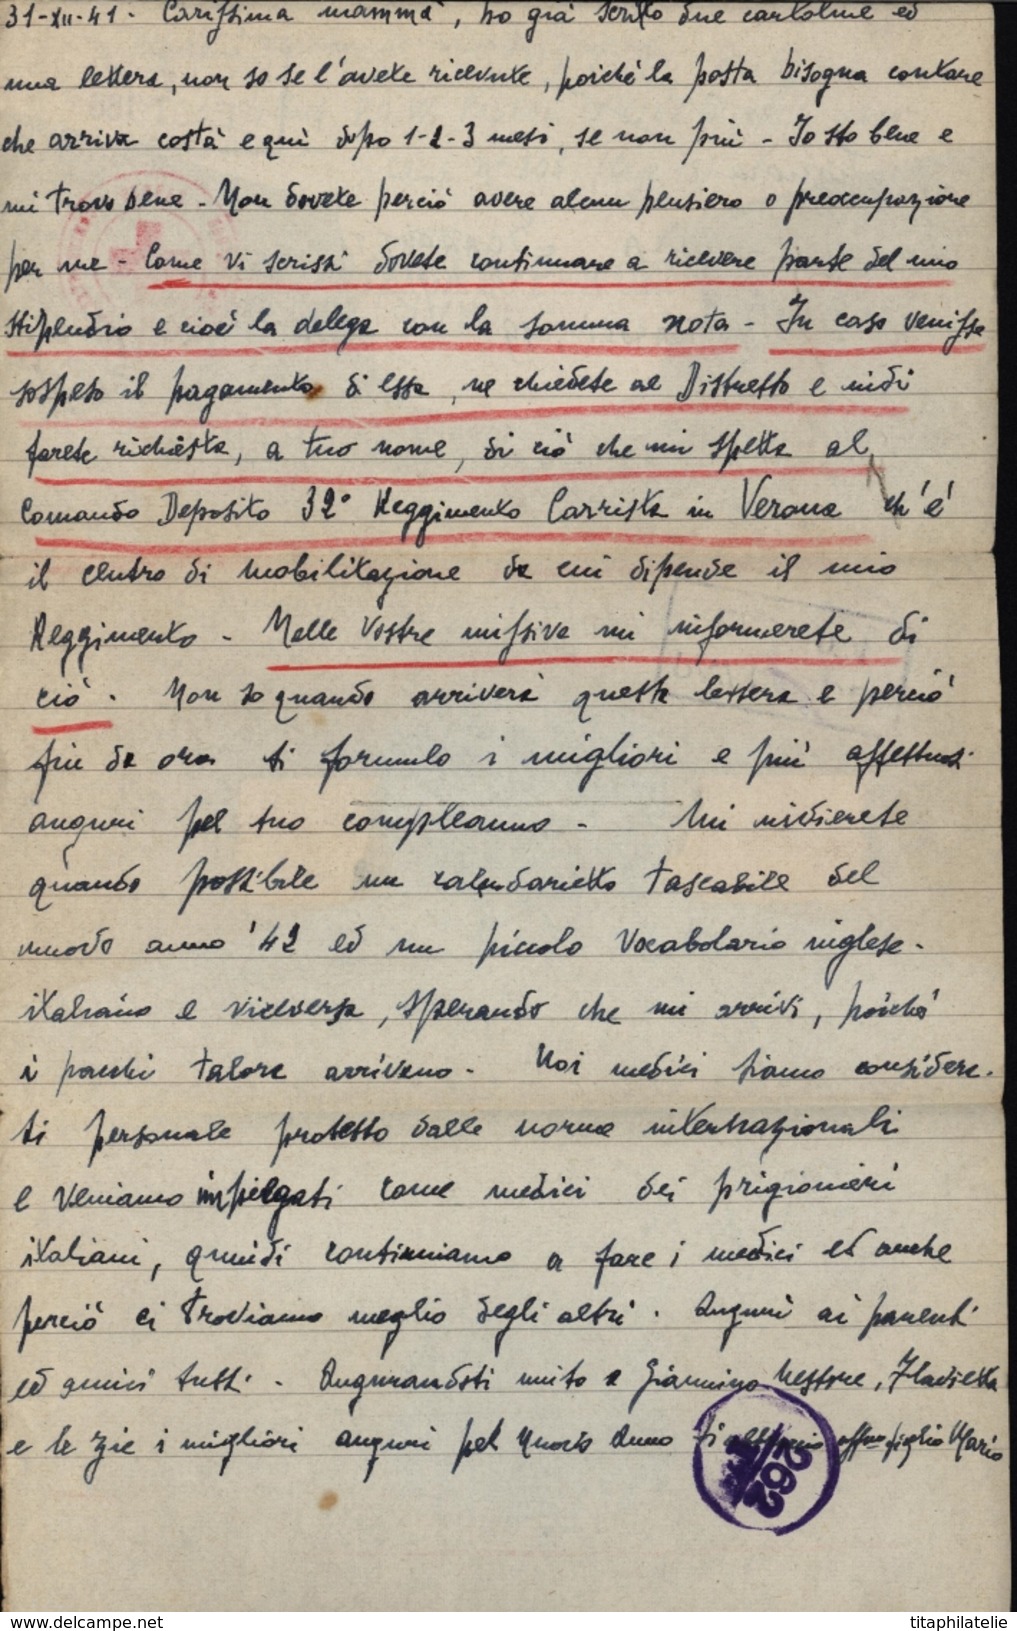 31-XII-41. Carissima mamma, ho già scritto due cartoline ed
una lettera, non so se l'avete ricevute, poiché la posta bisogna contare
che arriva costà e quì dopo 1-2-3 mesi, se non più - Io sto bene e
mi trovo bene - Non dovete perciò avere alcun pensiero o preoccupazione
per me - Come vi scrissi dovete continuare a ricevere parte del mio
stipendio e cioè la delega con la somma nota - In caso venisse
sospeso il pagamento di essa, ne chiedete al Distretto e indi
farete richiesta, a tuo nome, di ciò che mi spetta al
Comando Deposito 32° Reggimento Carrista in Verona ch'è
il centro di mobilitazione da cui dipende il mio
Reggimento - Nelle vostre missive mi informerete di
ciò. Non so quando arriverà questa lettera e perciò
fin da ora ti formulo i migliori e più affettuosi
auguri pel tuo compleanno - Mi invierete
quando possibile un calendarietto tascabile del
nuovo anno '42 ed un piccolo vocabolario inglese-
italiano e viceversa, sperando che mi arrivi, poiché
i pacchi talora arrivano - Noi medici siamo considera-
ti personale protetto dalle norme internazionali
e veniamo impiegati come medici dei prigionieri
italiani, quindi continuiamo a fare i medici ed anche
perciò ci troviamo meglio degli altri. Auguri ai parenti
ed amici tutti - Augurandoti unito a Giannino Nestore, Flavietta
e le zie i migliori auguri pel Nuovo Anno ti abbraccio affmo figlio Mario
262
www.delcampe.net
titaphilatelie